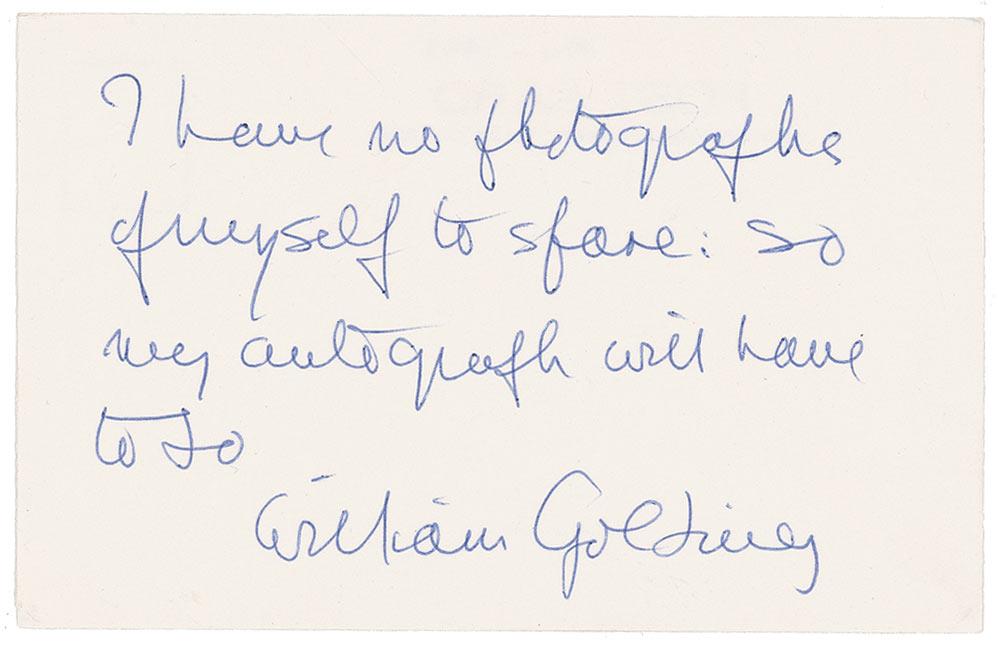 I have no photographs
of myself to spare: so
my autograph will have
to do
William Golding